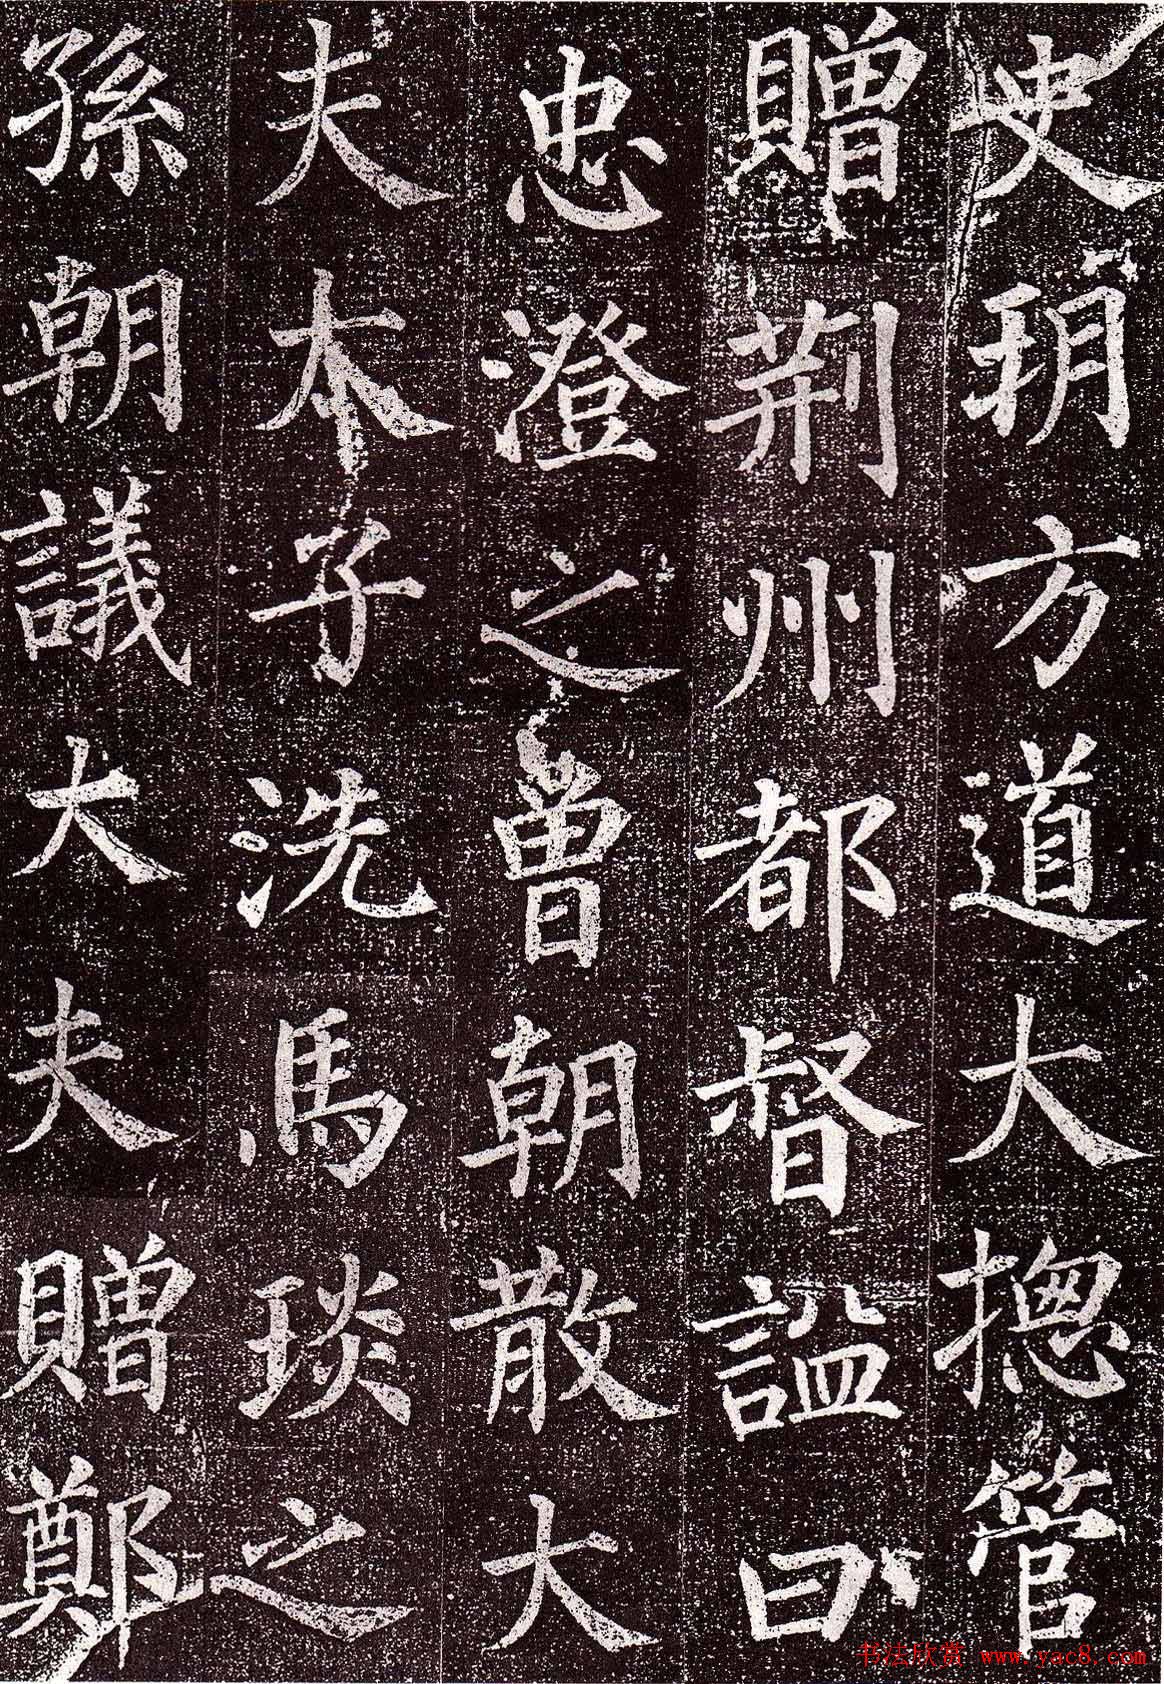 史玥方道大揔管
贈荆州都督謚曰
忠澄之曽朝散大
夫本子洗馬琰之
孫朝議大夫贈鄭
书法欣赏 www.yac8.com